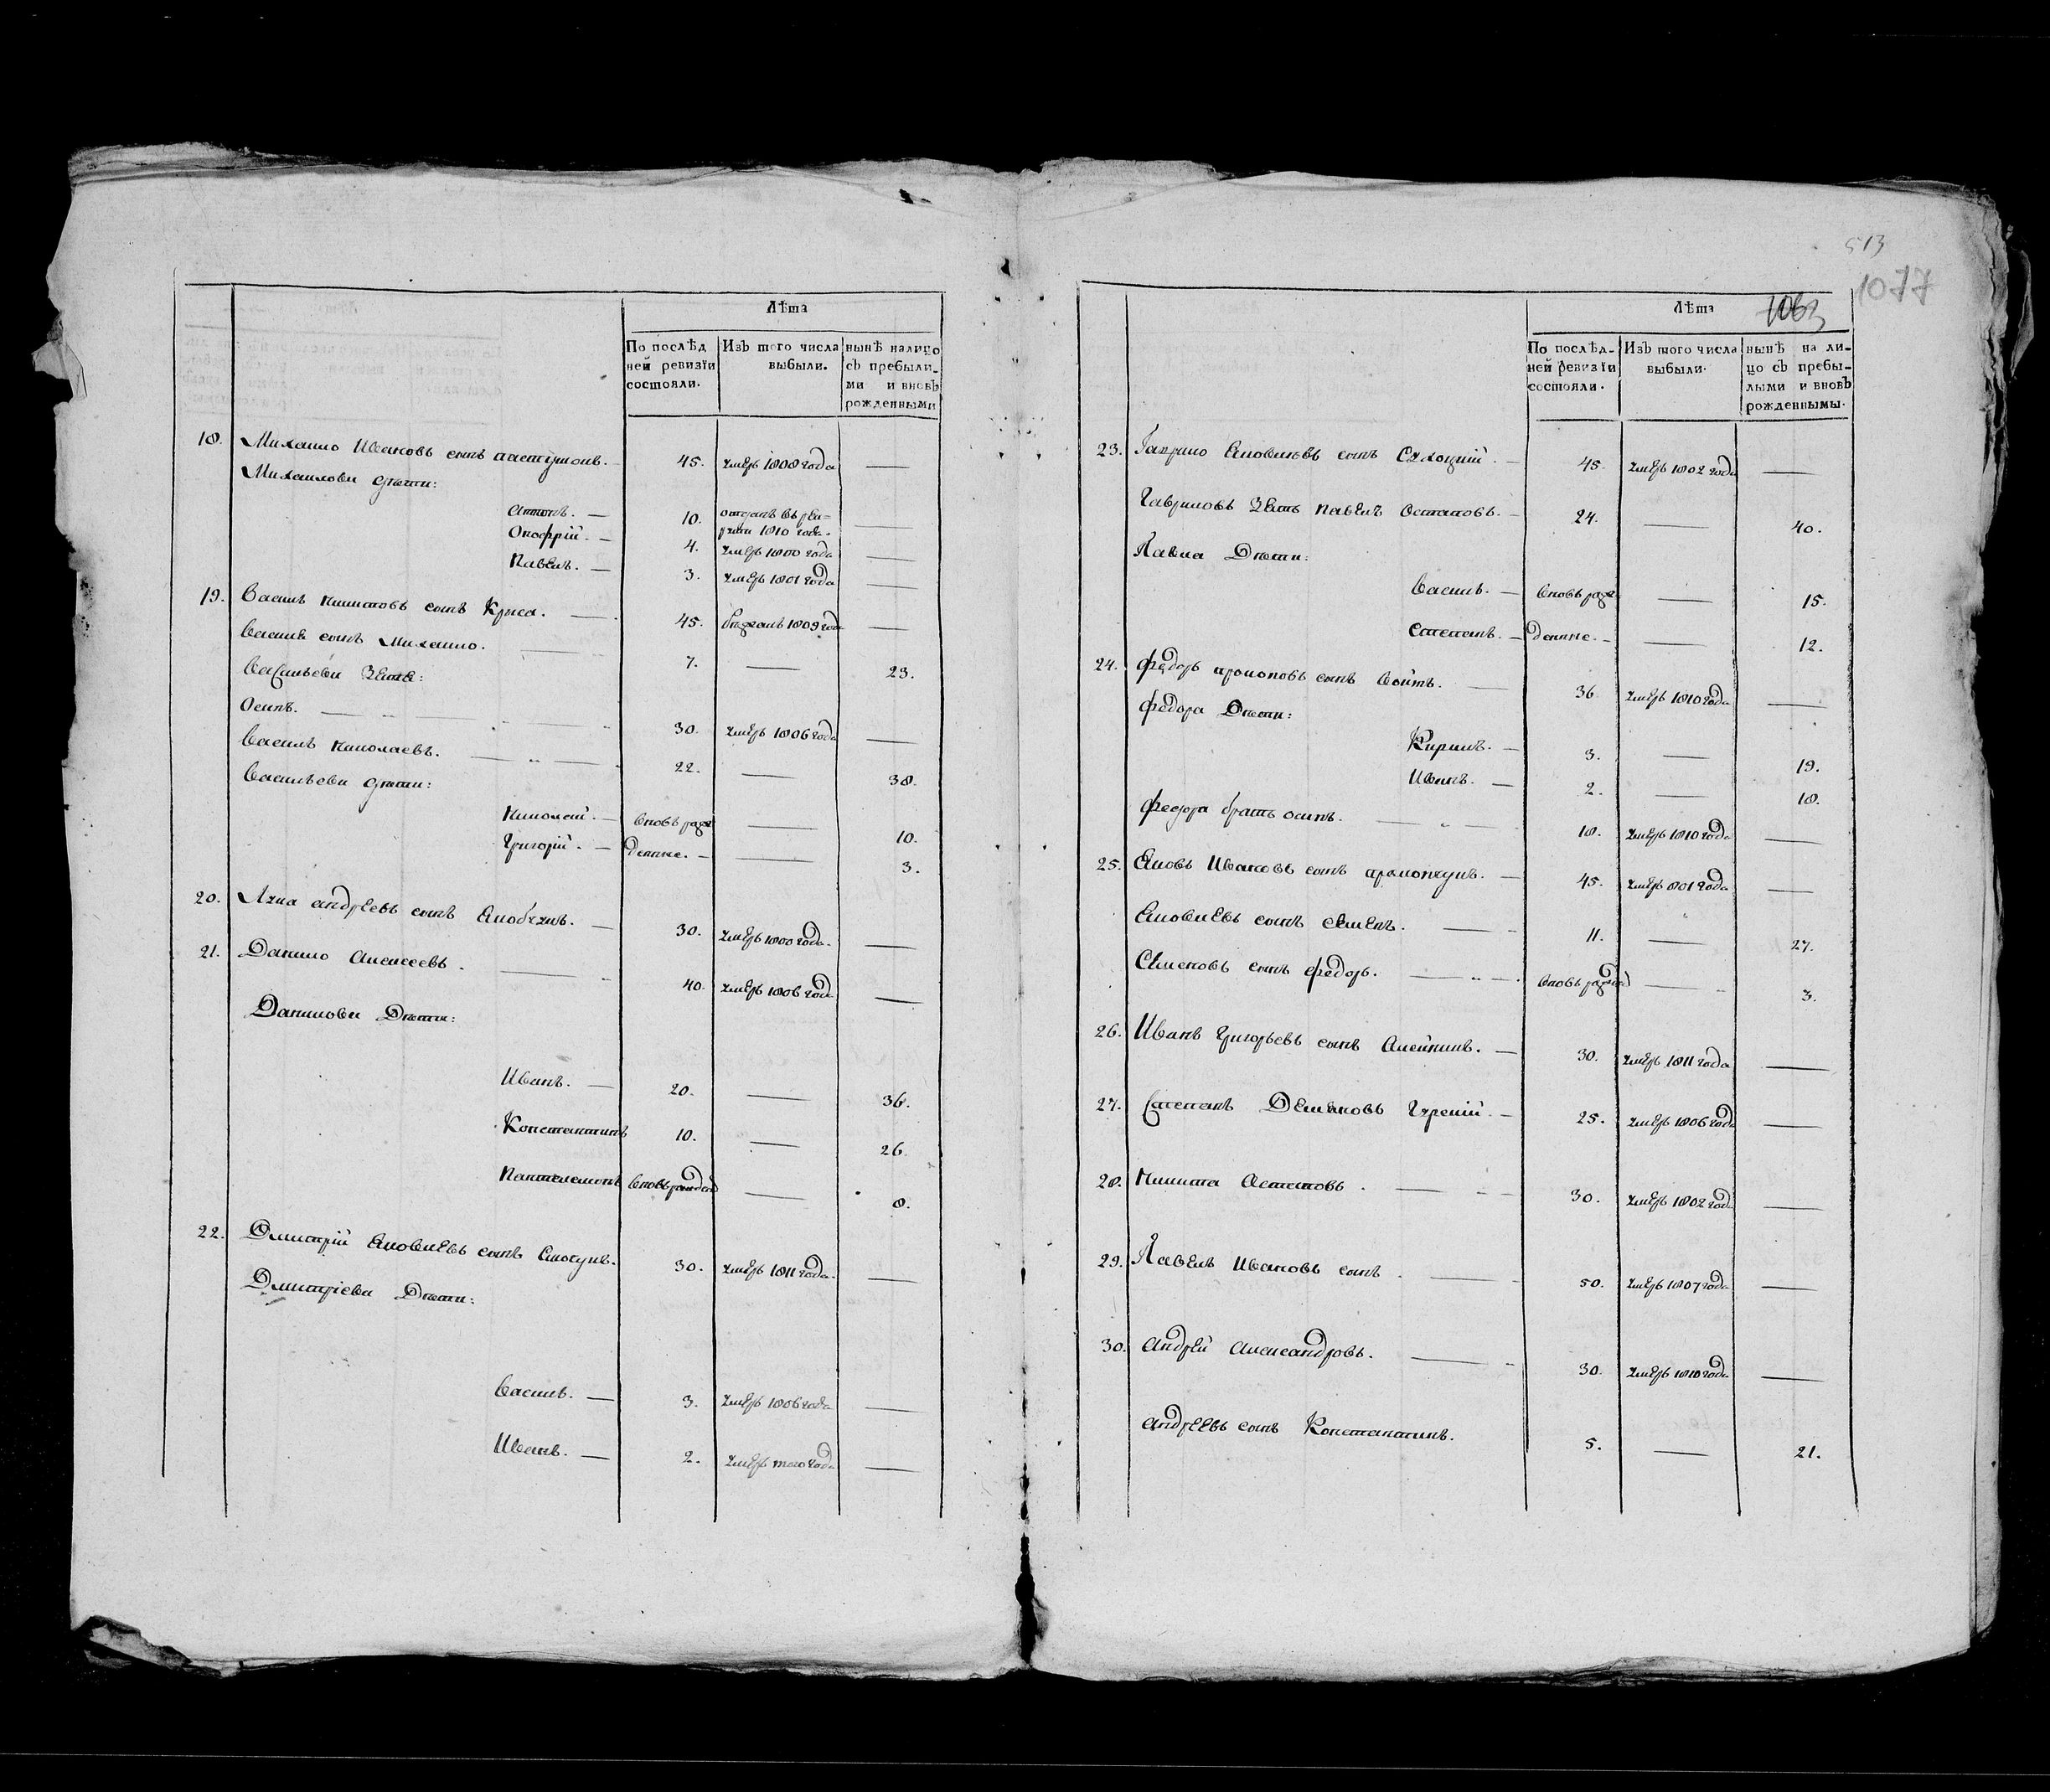 Лѣта
По послѣд
ней ревизїи
состояли.
Изъ того числа
выбыли.
нынѣ налицо
съ пребылы-
ми и вновь
рожденными
18. Михаило Ивановъ сынъ 45. умеръ 1808 года —
Михаилови дѣти:
Антонъ. — 10. отданъ въ рек-
руты 1810 года. —
Онофрій. — 4. умеръ 1800 года —
Павелъ. — 3. умеръ 1801 года —
19. Василь Никитовъ сынъ Криса. — 45. 1809 года —
Василя сынъ Михаило. — 7. — 23.
Васильеви Зятя:
Осипъ. — 30. умеръ 1806 года —
Василь Николаевъ. — 22. — 38.
Васильеви дѣти:
Николай. — вновь рож — 10.
Григорій. — денные. — — 3.
20. Лука Андреевъ сынъ — 30. умеръ 1800 года. —
21. Данило Алексеевъ. — 40. умеръ 1806 года —
Данилови Дѣти:
Иванъ. — 20. — 36.
Константинъ 10. — 26.
Пантелемонъ вновь рожден — 8.
22. Дмитрій Яковлевъ сынъ 30. умеръ 1811 года. —
Дмитріеви Дѣти:
Василь. — 3. умеръ 1806 года —
Иванъ. — 2. умеръ того года —
513
1077
1063
Лѣта
По послѣд-
ней ревизїи
состояли.
Изъ того числа
выбыли.
нынѣ на ли-
цо съ пребы-
лыми и вновь
рожденнымы.
23. Гаврило Яковлевъ сынъ — 45. умеръ 1802 года —
Гавриловъ Зять Павелъ Остаповъ. — 24. — 40.
Павла Дѣти:
Василь. — вновь рож — 15.
Степанъ. — денные. — — 12.
24. Федоръ сынъ Войтъ. — 36. умеръ 1810 года —
Федора Дѣти:
Кирилъ. — 3. — 19.
Иванъ. — 2. — 18.
Федора братъ Осипъ. — 18. умеръ 1810 года —
25. Яковъ Ивановъ сынъ — 45. умеръ 1801 года —
Яковлевъ сынъ Семенъ. — 11. — 27.
Семеновъ сынъ Федоръ. — вновь рожден — 3.
26. Иванъ Григорьевъ сынъ — 30. умеръ 1811 года —
27. Степанъ Демяновъ — 25. умеръ 1806 года —
28. Никита — 30. умеръ 1802 года —
29. Павелъ Ивановъ сынъ. — 50. умеръ 1807 года —
30. Андрей Александровъ. — 30. умеръ 1810 года —
Андреевъ сынъ Константинъ. 5. — 21.